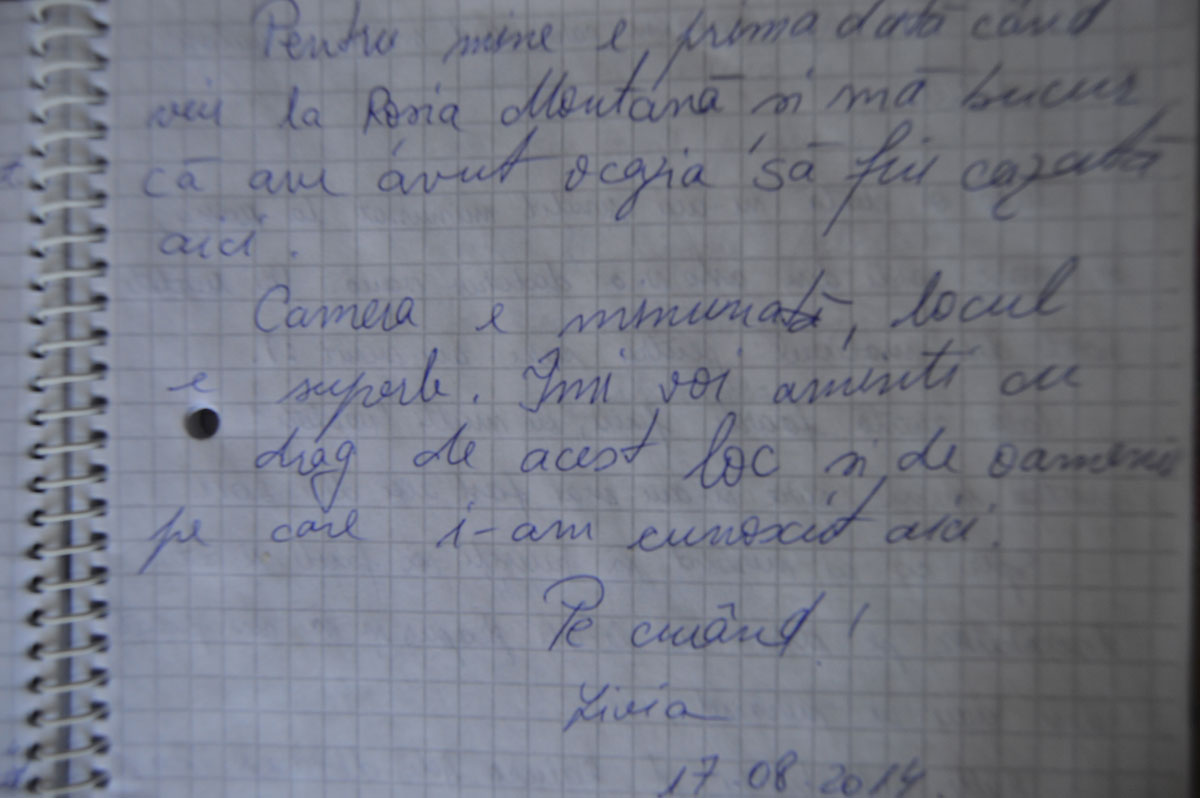 Pentru mine e prima dată când
vin la Rosia Montană si mă bucur
că am avut ocazia să fiu cazată
aici.
Camera e minunată, locul
e superb. Imi voi aminti cu
drag de acest loc si de oamenii
pe care i-am cunoscut aici.
Pe curând!
Livia
17.08.2014